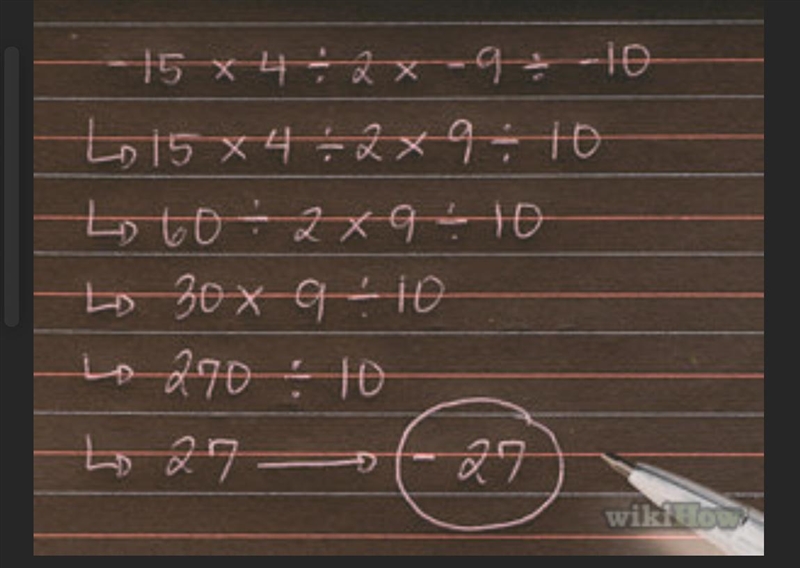 -15 × 4 ÷ 2 × -9 ÷ -10
↳ 15 × 4 ÷ 2 × 9 ÷ 10
↳ 60 ÷ 2 × 9 ÷ 10
↳ 30 × 9 ÷ 10
↳ 270 ÷ 10
↳ 27 → - 27
wikiHow